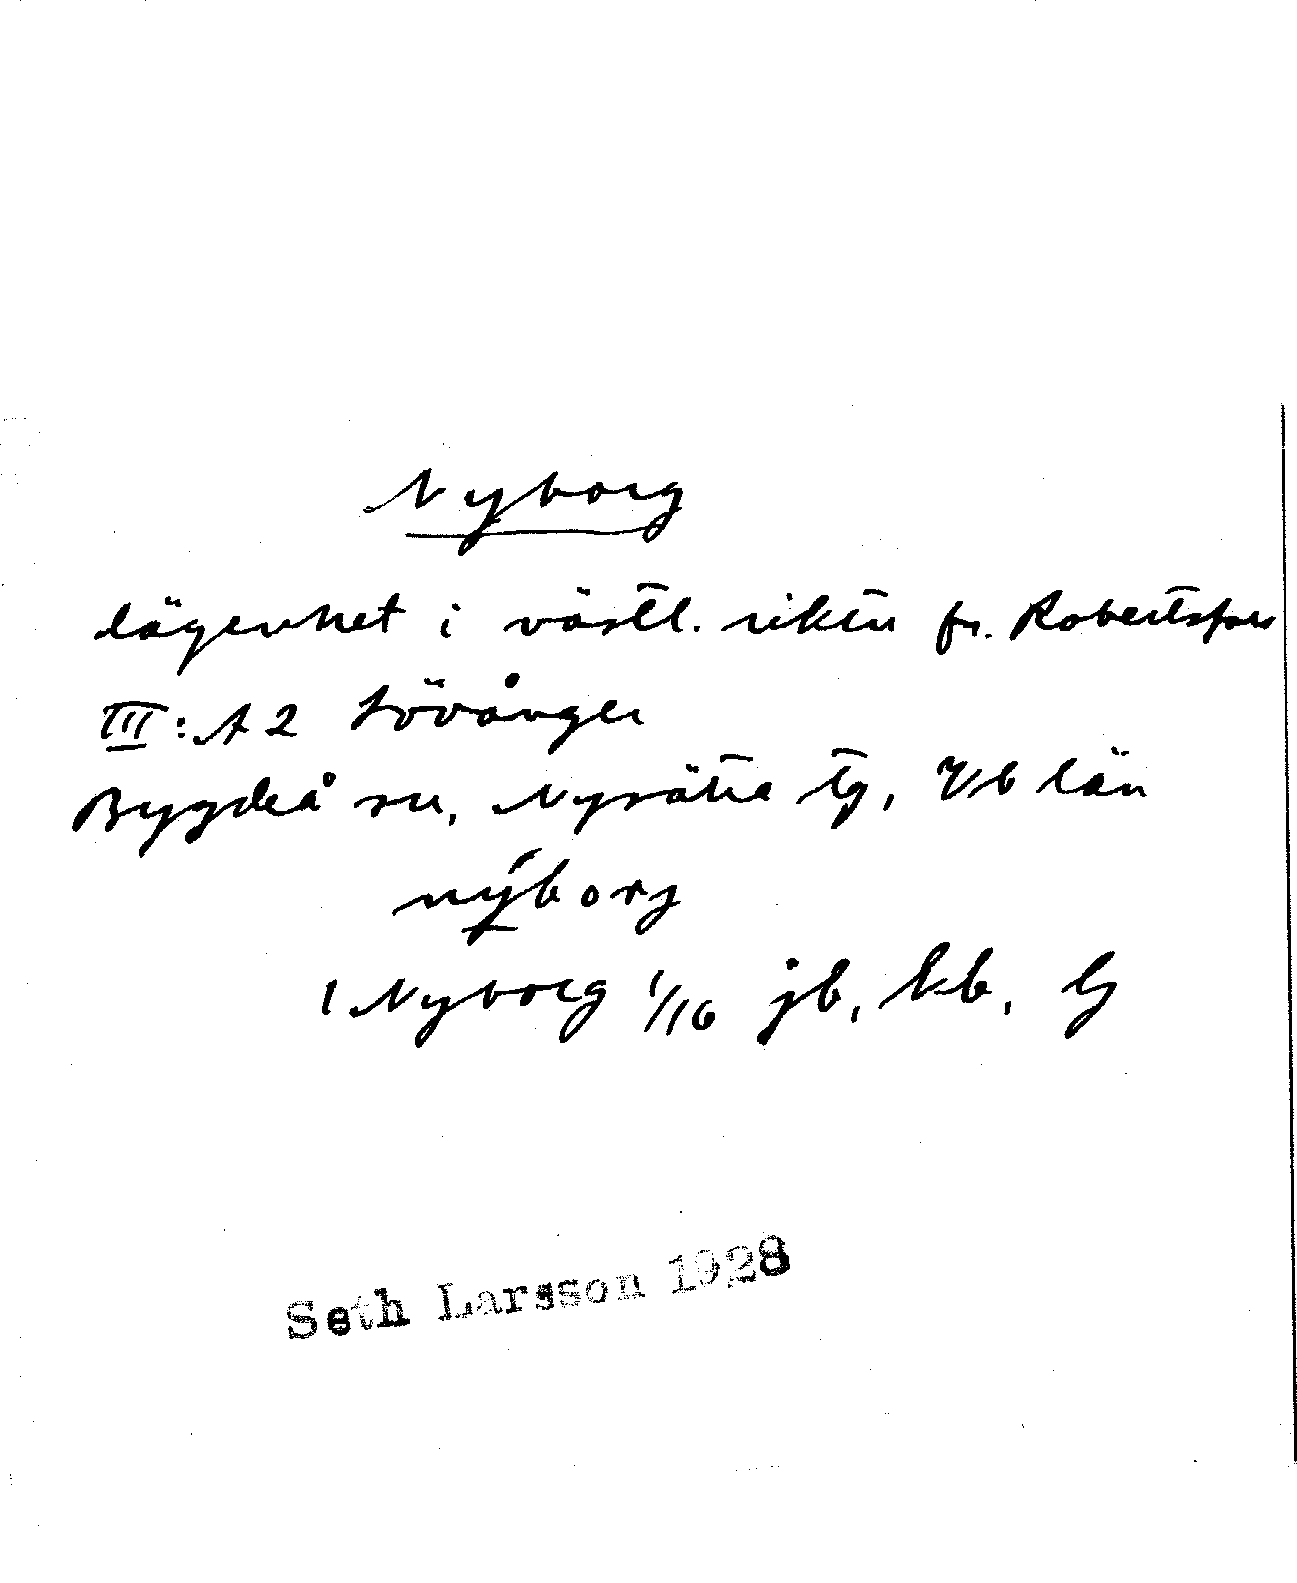 Nyborg
lägenhet i västl. riktn fr. Robertsfors
III: A 2 Lövånger
Bygdeå sn, Nysätra tg, Vb län
nýborj
1 Nyborg 1/16 jb, kb,
Seth Larsson 1928